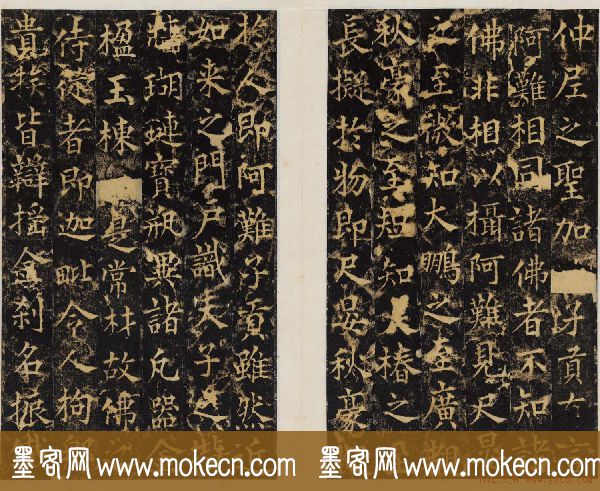 仲尼之聖加
貢
阿難相同諸佛者不知諸
佛非相以攝阿難見尺
之至微知大鵬之
廣
秋豪之至短知大椿之
長擬於物即尺晏秋豪
於人即阿難子貢雖然近
如来之門戶識夫子之
瑚璉寶瓶異諸凡器今
楹玉棟
是常材故佛
侍從者即迦毗令人拘
貴族皆辯揺金刹名振
墨客网 www.mokecn.com
墨客网 www.mokecn.com